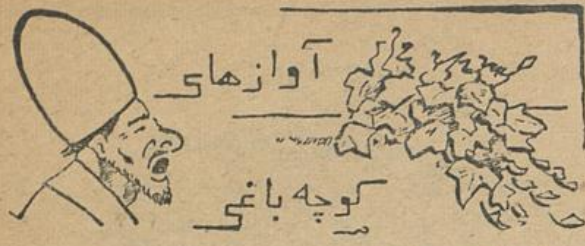 آوازهای
کوچه باغی